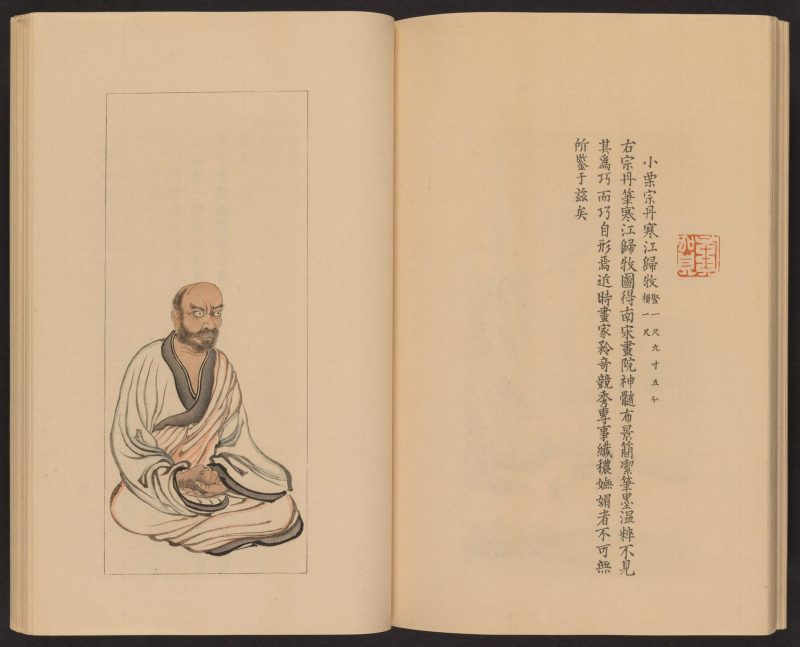 小栗宗丹寒江歸牧 豎一尺九寸五分 橫一尺
右宗丹筆寒江歸牧圖得南宋畫院神髓布景簡潔筆墨溫粹不見
其爲巧而巧自形焉近時畫家矜奇競秀專事纖穠嫵媚者不可無
所鑒于茲矣